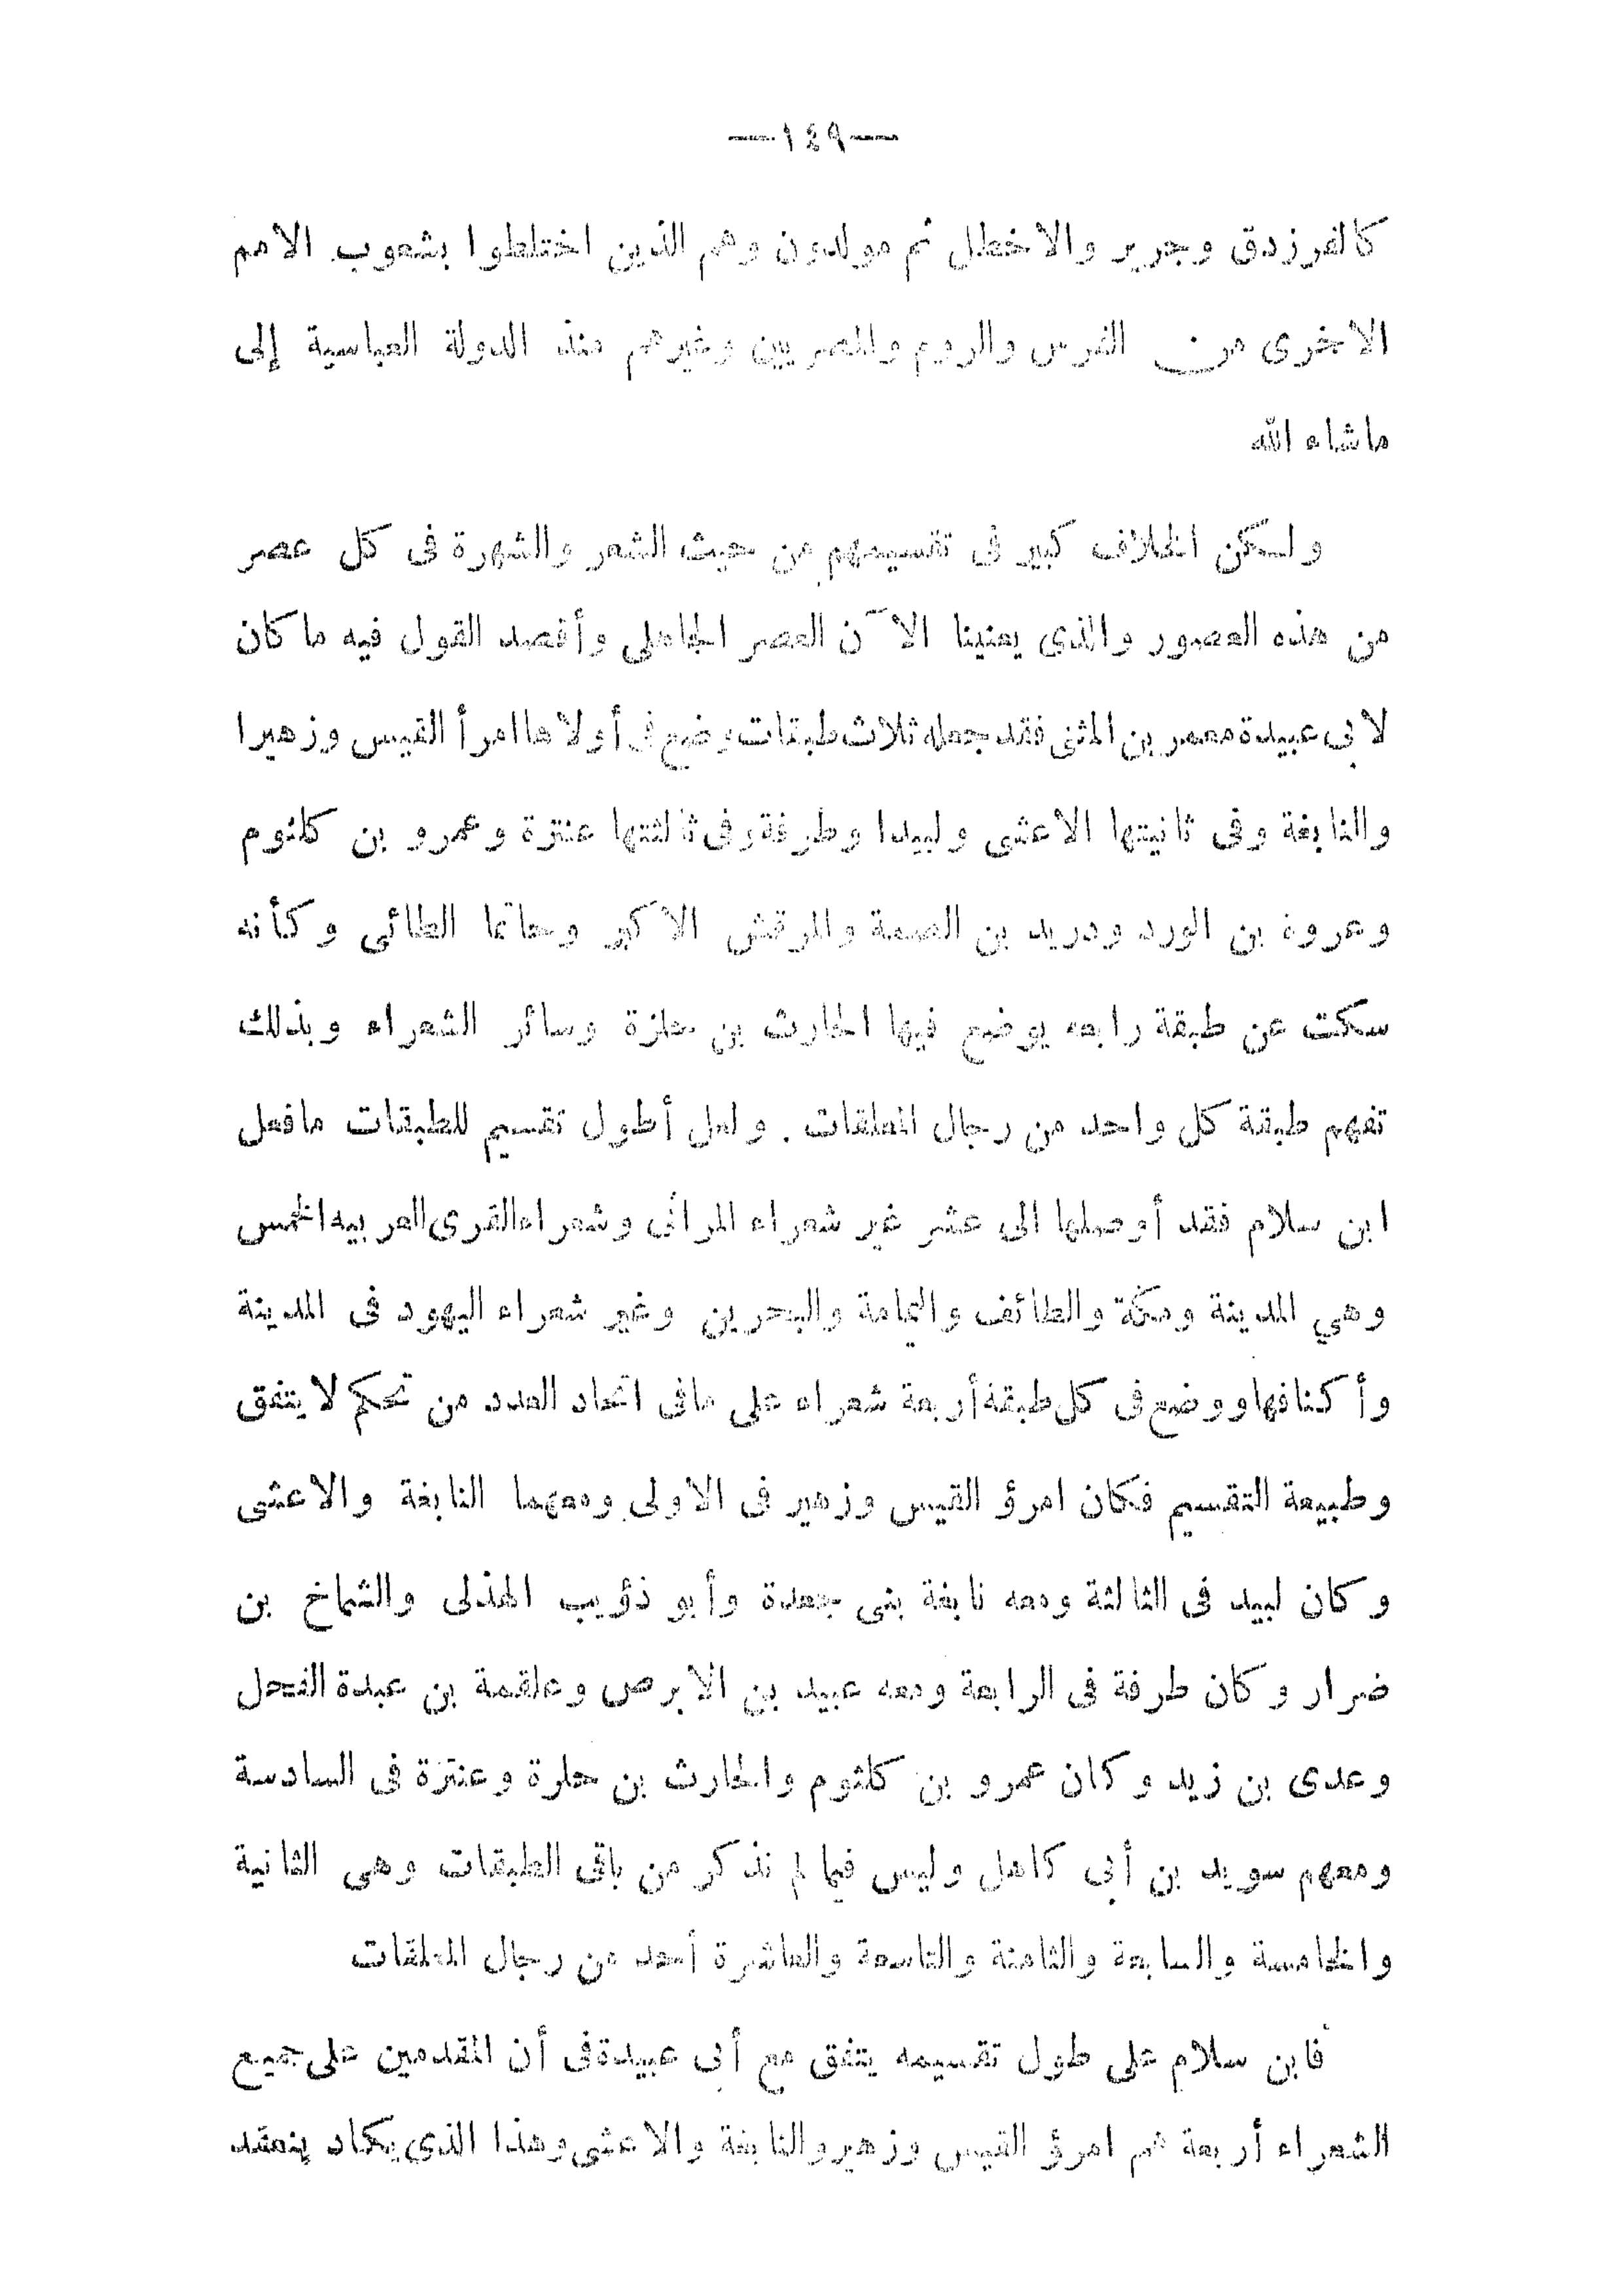 —١٤٩—
كالفرزدق وجرير والاخطل ثم مولدون وهم الذين اختلطوا بشعوب الامم
الاخرى من الفرس والروم والمصريين وغيرهم منذ الدولة العباسية إلى
ماشاء الله
ولكن الخلاف كبير فى تقسيمهم من حيث الشعر والشهرة فى كل عصر
من هذه العصور والذى يعنينا الآن العصر الجاهلى وأقصد القول فيه ما كان
لابى عبيدة معمر بن المثنى فقد جعله ثلاث طبقات وضع فى أولاها امرأ القيس وزهيرا
والنابغة وفى ثانيتها الاعشى ولبيدا وطرفة وفى ثالثتها عنترة وعمرو بن كلثوم
وعروة بن الورد ودريد بن الصمة والمرقش الاكبر وحاتما الطائى وكأنه
سكت عن طبقة رابعه يوضع فيها الحارث بن حلزة وسائر الشعراء وبذلك
تفهم طبقة كل واحد من رجال المعلقات . ولعل أطول تقسيم للطبقات مافعل
ابن سلام فقد أوصلها الى عشر غير شعراء المراثى وشعراء القرى العربيه الخمس
وهي المدينة ومكة والطائف واليمامة والبحرين وغير شعراء اليهود فى المدينة
وأكنافها ووضع فى كل طبقة أربعة شعراء على مافى اتحاد العدد من تحكم لا يتفق
وطبيعة التقسيم فكان امرؤ القيس وزهير فى الاولى ومعهما النابغة والاعشى
وكان لبيد فى الثالثة ومعه نابغة بنى جعدة وأبو ذؤيب الهذلى والشماخ بن
ضرار وكان طرفة فى الرابعة ومعه عبيد بن الابرص وعلقمة بن عبدة الفحل
وعدى بن زيد وكان عمرو بن كلثوم والحارث بن حلرة وعنترة فى السادسة
ومعهم سويد بن أبى كاهل وليس فيما لم نذكر من باقى الطبقات وهى الثانية
والخامسة والسابعة والثامنة والتاسعة والعاشرة أحد من رجال المعلقات
فابن سلام على طول تقسيمه يتفق مع أبى عبيدة فى أن المقدمين على جميع
الشعراء أربعة هم امرؤ القيس وزهير والنابغة والاعشى وهذا الذى يكاد ينعقد